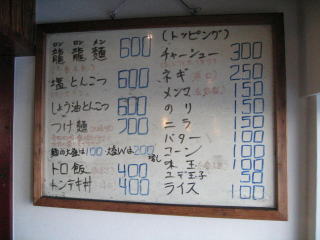 ロン ロン メン
龍 龍 麺 600
塩とんこつ 600
しょう油とんこつ 600
つけ麺 700
麺の大盛は100 大盛Wは200増し
トロ飯 400
トンテキ丼 400
(トッピング)
チャーシュー 300
ネギ 250
メンマ 150
のり 150
ニラ 150
バター 100
コーン 100
味玉 100
ユデ玉子 50
ライス 100